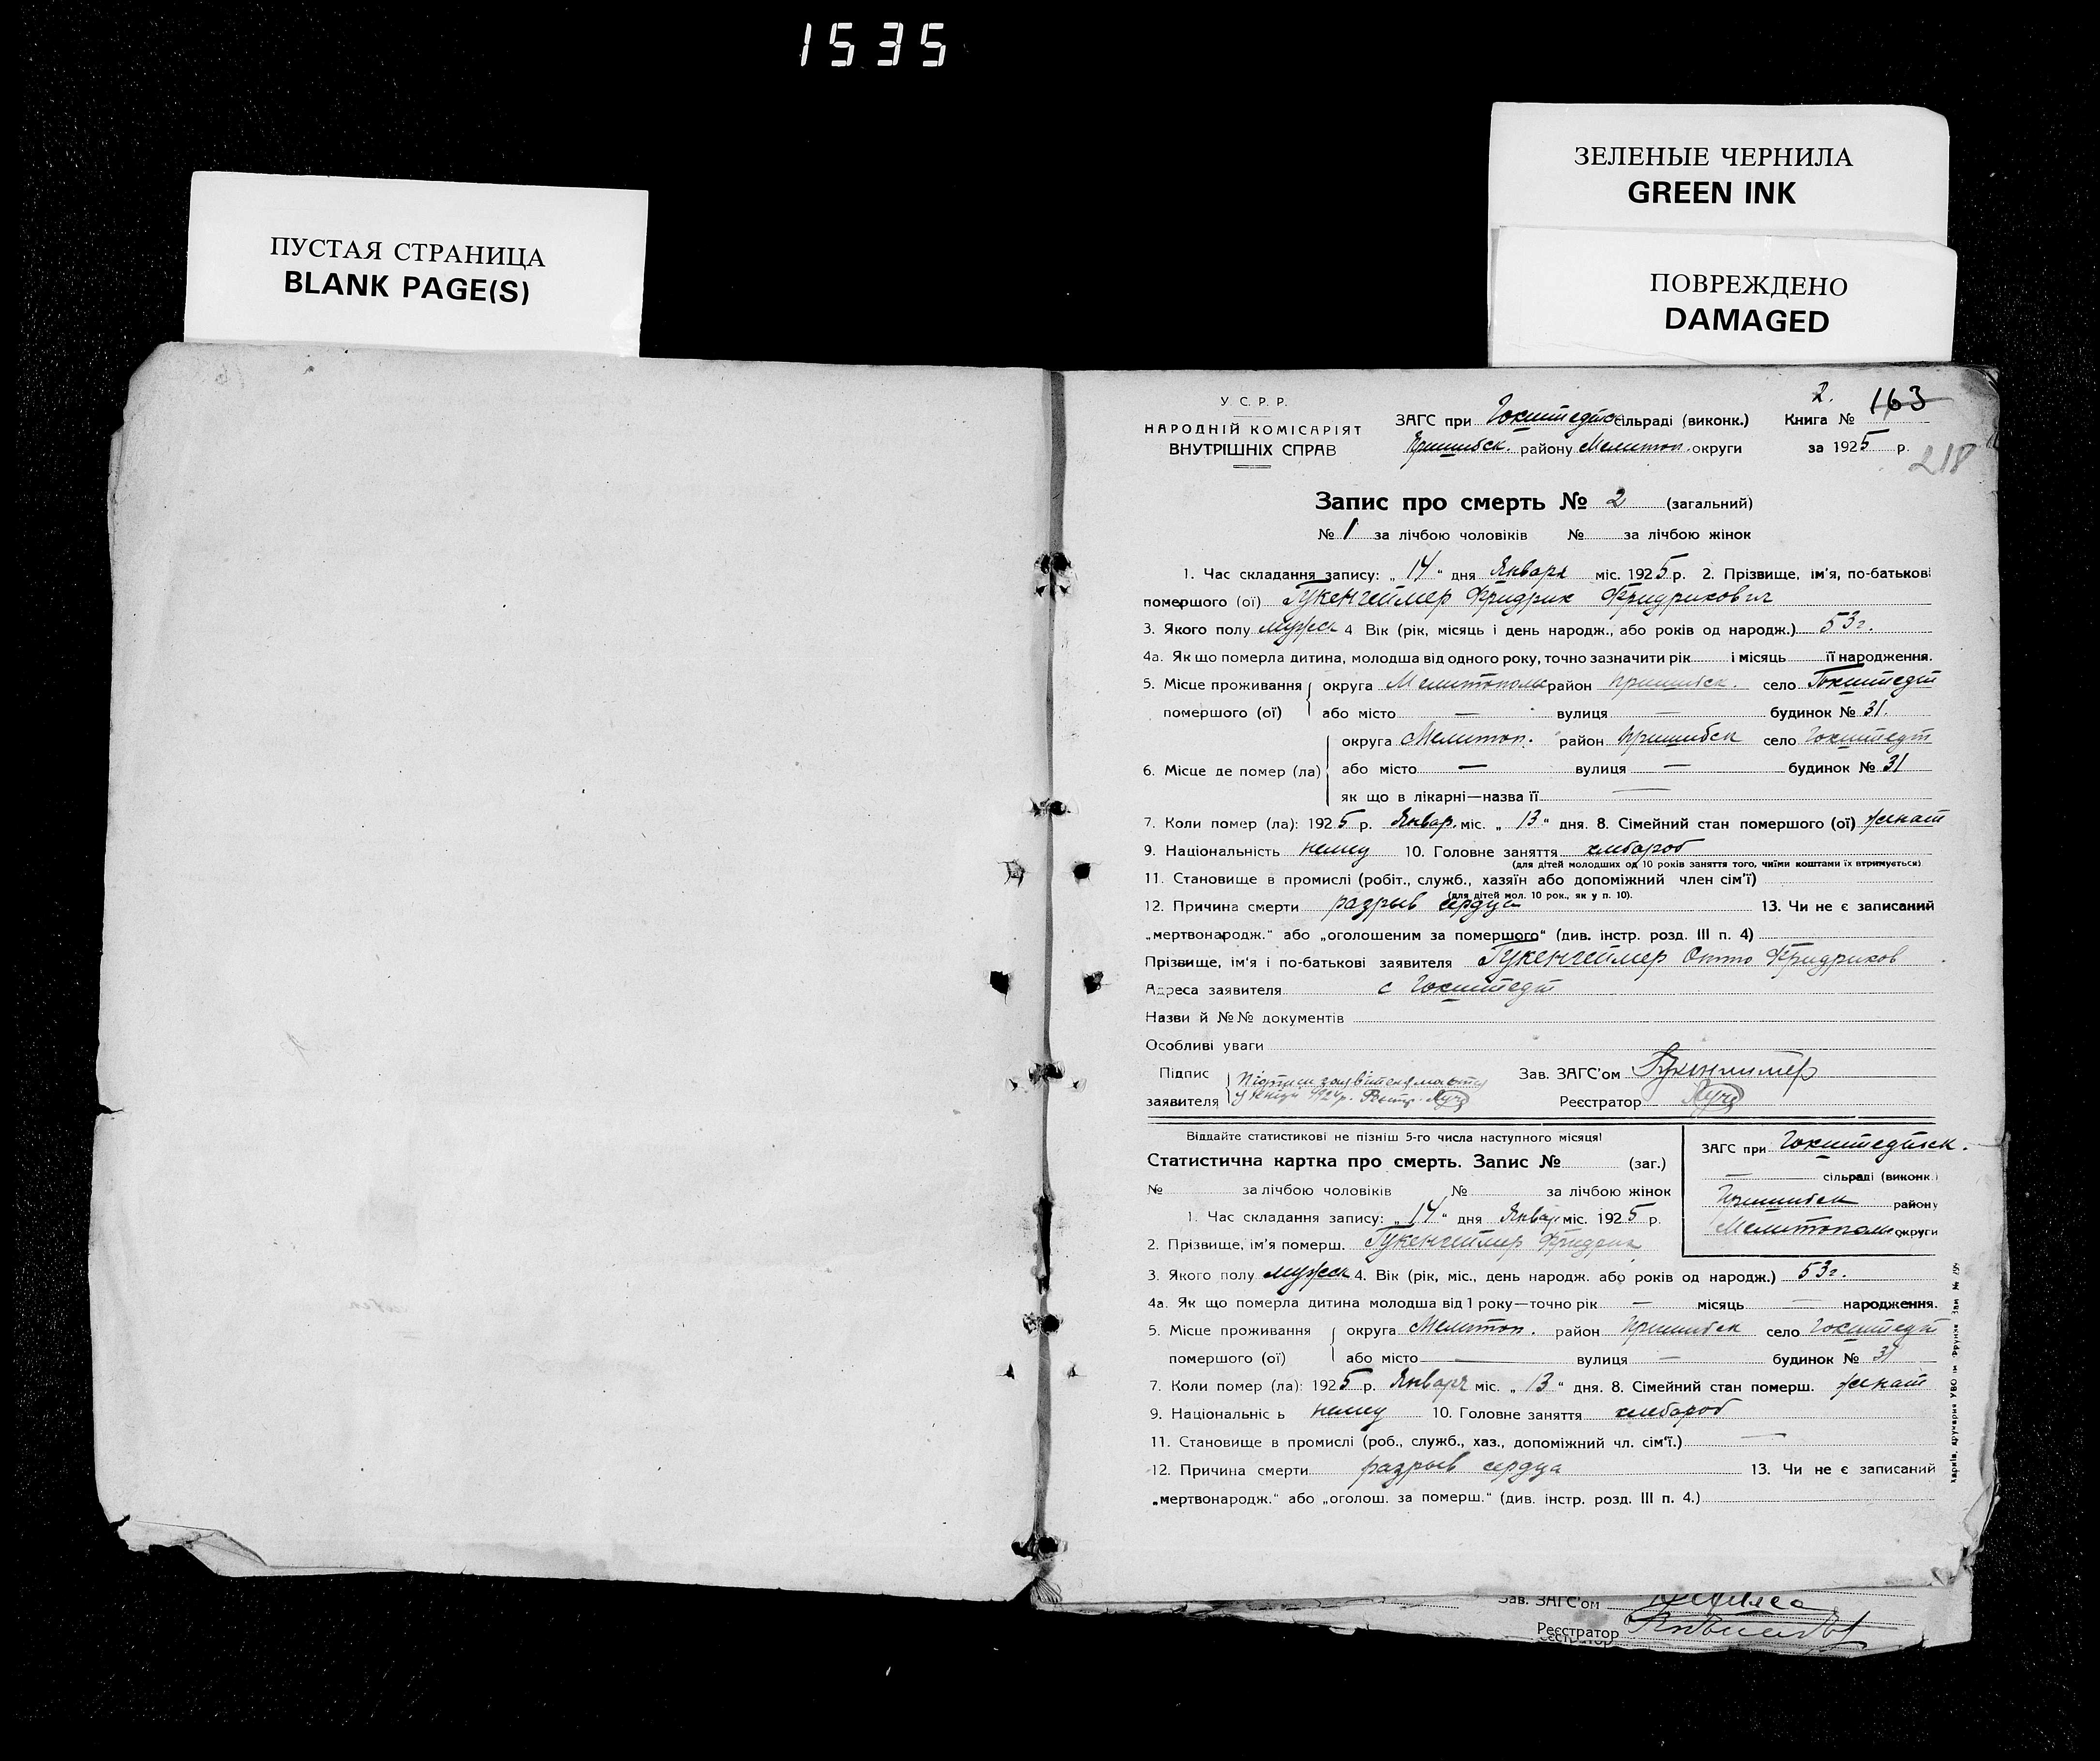 1535
ПУСТАЯ СТРАНИЦА
BLANK PAGE(S)
ЗЕЛЕНЫЕ ЧЕРНИЛА
GREEN INK
ПОВРЕЖДЕНО
DAMAGED
У. С. Р. Р.
НАРОДНІЙ КОМІСАРІЯТ
ВНУТРІШНІХ СПРАВ
ЗАГС при Гохштедтс сільраді (виконк.)
Пришибск. району Мелитоп. округи
2.
Книга № 163
за 1925 р.
218
Запис про смерть № 2 (загальний)
№ 1 за лічбою чоловіків № за лічбою жінок
1. Час складання запису: „14“ дня Января міс. 1925 р. 2. Прізвище, ім'я, по-батькові
помершого (ої) Гукенгеймер Фридрих Фридрихович
3. Якого полу мужск 4 Вік (рік, місяць і день народж., або років од народж.) 53 г.
4а. Як що померла дитина, молодша від одного року, точно зазначити рік і місяць її народження.
5. Місце проживання округа Мелитополь район Пришибск. село Гохштедт
помершого (ої) або місто — вулиця — будинок № 31.
округа Мелитоп. район Пришибск село Гохштедт
6. Місце де помер (ла) або місто — вулиця — будинок № 31
як що в лікарні—назва її —
7. Коли помер (ла): 1925 р. Январ. міс. „13“ дня. 8. Сімейний стан помершого (ої) женат
9. Національність немец 10. Головне заняття хлебороб
(для дітей молодших од 10 років заняття того, чиїми коштами їх втримується)
11. Становище в промислі (робіт., служб., хазяїн або допоміжний член сім'ї)
(для дітей мол. 10 рок., як у п. 10).
12. Причина смерти разрыв сердца 13. Чи не є записаний
„мертвонародж.“ або „оголошеним за помершого“ (див. інстр. розд. III п. 4)
Прізвище, ім'я і по-батькові заявителя Гукенгеймер Отто Фридрихов
Адреса заявителя с Гохштедт
Назви й №№ документів
Особливі уваги
Підпис
заявителя
Зав. ЗАГС'ом Гукенгеймер
Реєстратор
Віддайте статистикові не пізніш 5-го числа наступного місяця!
Статистична картка про смерть. Запис № (заг.)
№ за лічбою чоловіків № за лічбою жінок
ЗАГС при Гохштедтск.
— сільраді (виконк.)
Пришибск району
Мелитополь округи
1. Час складання запису: „14“ дня Январ міс. 1925 р.
2. Прізвище, ім'я померш. Гукенгеймер Фридрих
3. Якого полу мужск 4. Вік (рік, міс., день народж. або років од народж.) 53 г.
4а. Як що померла дитина молодша від 1 року—точно рік — місяць — народження.
5. Місце проживання округа Мелитоп. район Пришибск село Гохштедт
помершого (ої) або місто — вулиця — будинок № 31
7. Коли помер (ла): 1925 р. Января міс. „13“ дня. 8. Сімейний стан померш. женат
9. Національніс ь немец 10. Головне заняття хлебороб
11. Становище в промислі (роб., служб., хаз., допоміжний чл. сім'ї.) —
12. Причина смерти разрыв сердца 13. Чи не є записаний
„мертвонародж.“ або „оголош. за померш.“ (див. інстр. розд. III п. 4.)
Зав. ЗАГС'ом
Реєстратор